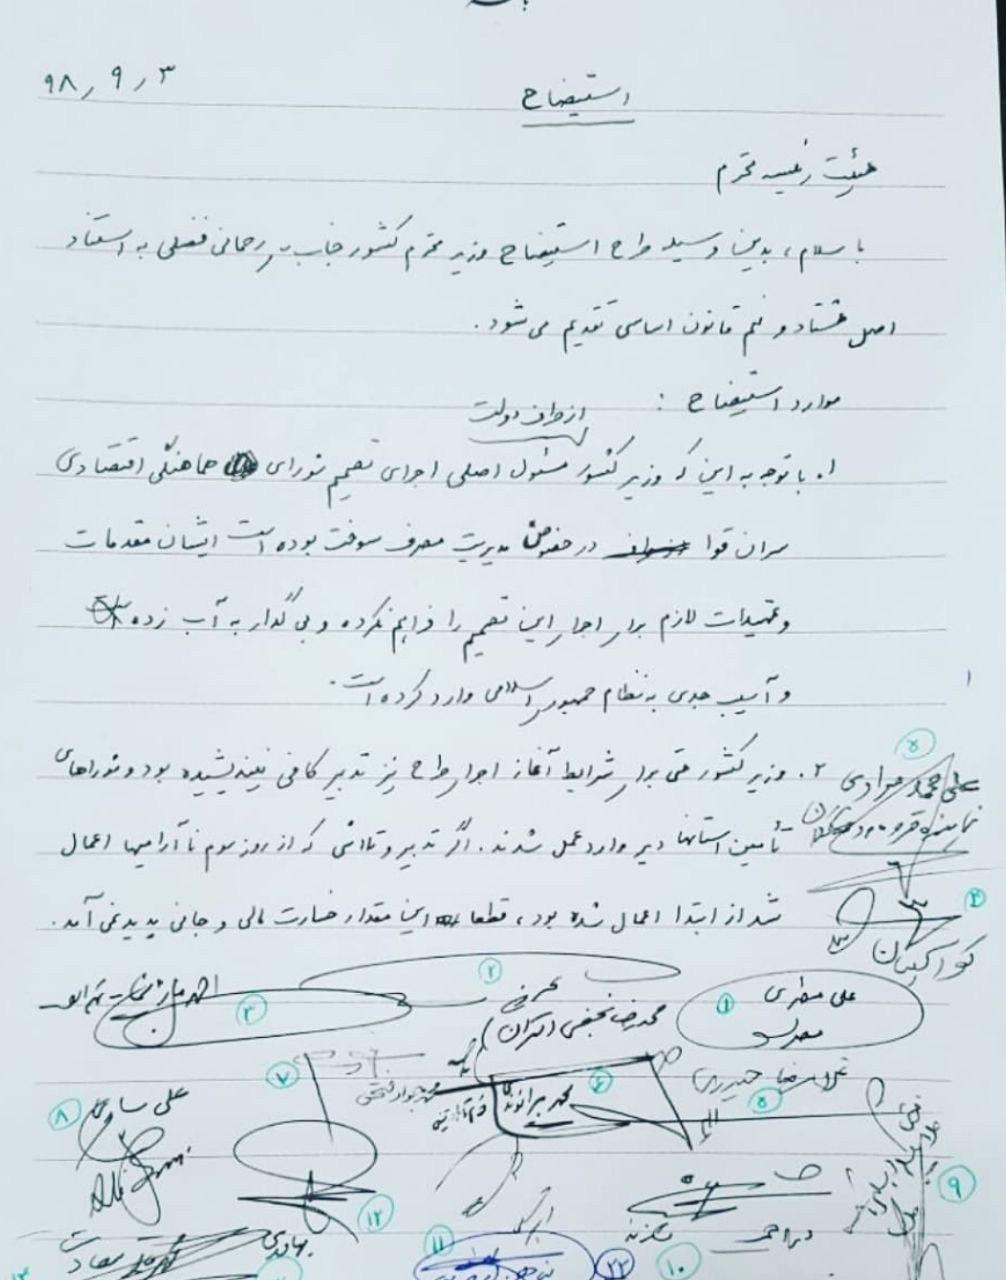 ۹۸٫۹٫۳
استیضاح
هیئت رئیسه محترم
با سلام، بدین وسیله طرح استیضاح وزیر محترم کشور جناب رحمانی فضلی به استناد
اصل هشتاد و نهم قانون اساسی تقدیم می شود.
موارد استیضاح :
از طرف دولت
۱. با توجه به این که وزیر کشور مسئول اصلی اجرای تصمیم شورای هماهنگی اقتصادی
سران قوا در خصوص مدیریت مصرف سوخت بوده است ایشان مقدمات
و تمهیدات لازم برای اجرای این تصمیم را فراهم نکرده و بی گدار به آب زده
و آسیب جدی به نظام جمهوری اسلامی وارد کرده است.
۲. وزیر کشور حتی برای شرایط آغاز اجرای طرح نیز تدبیر کافی نیندیشیده بود و شوراهای
تأمین استانها دیر وارد عمل شدند. اگر تدبیر و تلاشی که از روز سوم ناآرامیها اعمال
شد از ابتدا اعمال شده بود، قطعا این مقدار خسارت مالی و جانی پدید نمی آمد.
۵
علی محمد مرادی
نماینده قروه
۴
کواکبیان
۱
علی مطهری
۲
محمدرضا نجفی تهران
۳
احمد مازنی تهران
غلامرضا حیدری
۵
۶
محمد جواد فتحی
۷
علی ساری
۸
۹
۱۰
۱۱
۱۲
۲۲
بهادری